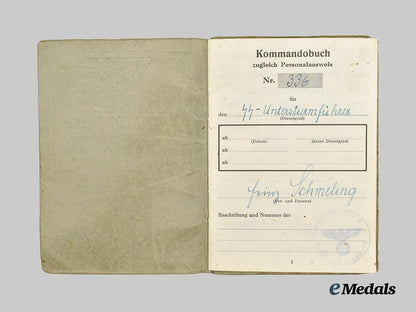 Kommandobuch
zugleich Personalausweis
Nr. 336
für
den SS-Untersturmführer
(Dienstgrad)
ab
(Datum) (neuer Dienstgrad)
ab
ab
Schmeling
(Vor- und Zuname)
Beschriftung und Nummer der
1
eMedals